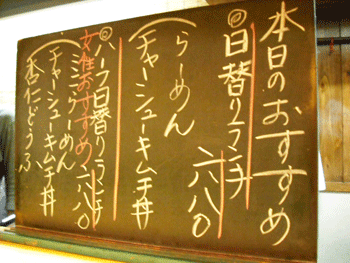 本日のおすすめ
◎日替りランチ 六八〇
(らーめん
チャーシューキムチ丼
◎ハーフ日替りランチ
女性おすすめ! 六八〇
(ミニらーめん
チャーシューキムチ丼
杏仁どうふ